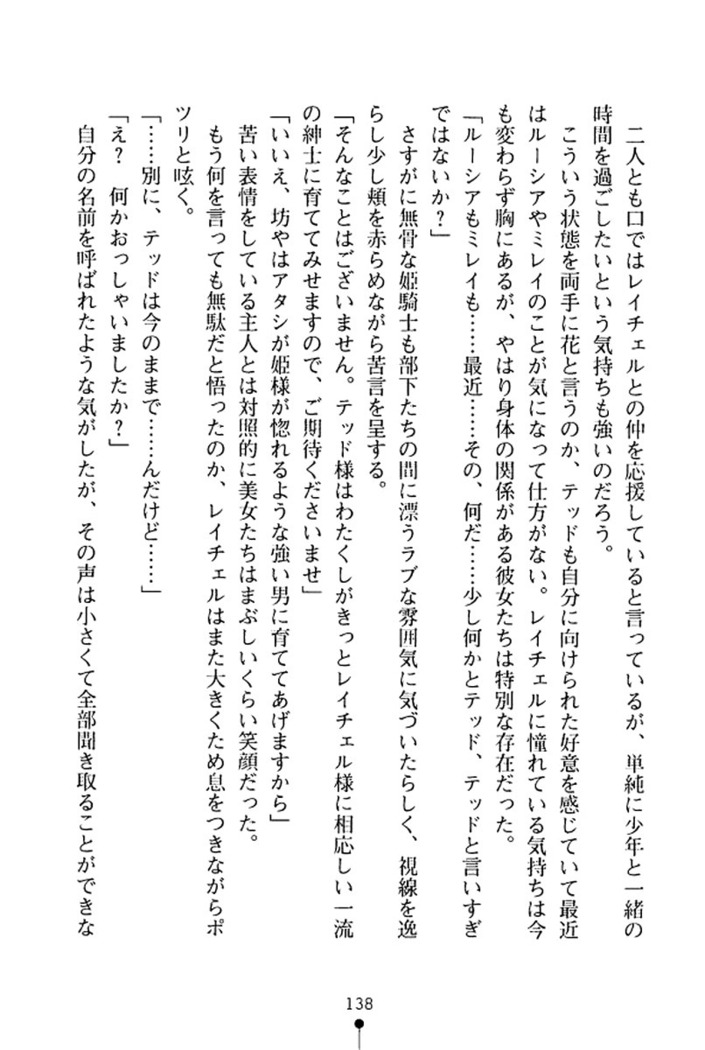 二人とも口ではレイチェルとの仲を応援していると言っているが、単純に少年と一緒の
時間を過ごしたいという気持ちも強いのだろう。
こういう状態を両手に花と言うのか、テッドも自分に向けられた好意を感じていて最近
はルーシアやミレイのことが気になって仕方がない。レイチェルに憧れている気持ちは今
も変わらず胸にあるが、やはり身体の関係がある彼女たちは特別な存在だった。
「ルーシアもミレイも……最近……その、何だ……少し何かとテッド、テッドと言いすぎ
ではないか？」
さすがに無骨な姫騎士も部下たちの間に漂うラブな雰囲気に気づいたらしく、視線を逸
らし少し頬を赤らめながら苦言を呈する。
「そんなことはございません。テッド様はわたくしがきっとレイチェル様に相応しい一流
の紳士に育ててみせますので、ご期待くださいませ」
「いいえ、坊やはアタシが姫様が惚れるような強い男に育ててあげますから」
苦い表情をしている主人とは対照的に美女たちはまぶしいくらい笑顔だった。
もう何を言っても無駄だと悟ったのか、レイチェルはまた大きくため息をつきながらポ
ツリと呟く。
「……別に、テッドは今のままで……んだけど……」
「え？　何かおっしゃいましたか？」
自分の名前を呼ばれたような気がしたが、その声は小さくて全部聞き取ることができな
138